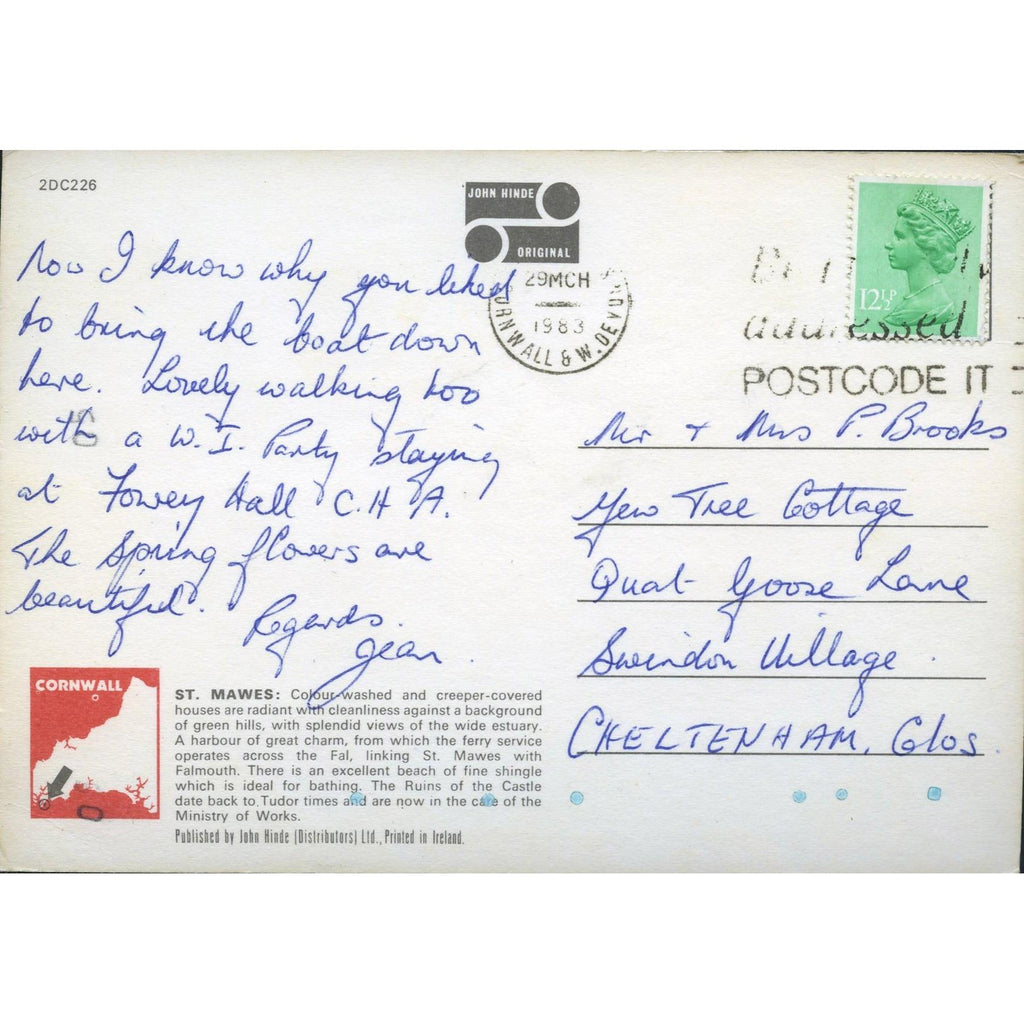 2DC226
JOHN HINDE
ORIGINAL
29MCH
1983
CORNWALL & W. DEVON
12½P
addressed
POSTCODE IT
Now I know why you liked
to bring the boat down
here. Lovely walking too
with a W.I. Party staying
at Fowey Hall C.H.A.
The Spring flowers are
beautiful.
Regards.
Jean.
Mr + Mrs P. Brooks
Yew Tree Cottage
Quat Goose Lane
Swindon Village.
CHELTENHAM. Glos.
CORNWALL
ST. MAWES: Colour-washed and creeper-covered
houses are radiant with cleanliness against a background
of green hills, with splendid views of the wide estuary.
A harbour of great charm, from which the ferry service
operates across the Fal, linking St. Mawes with
Falmouth. There is an excellent beach of fine shingle
which is ideal for bathing. The Ruins of the Castle
date back to Tudor times and are now in the care of the
Ministry of Works.
Published by John Hinde (Distributors) Ltd., Printed in Ireland.